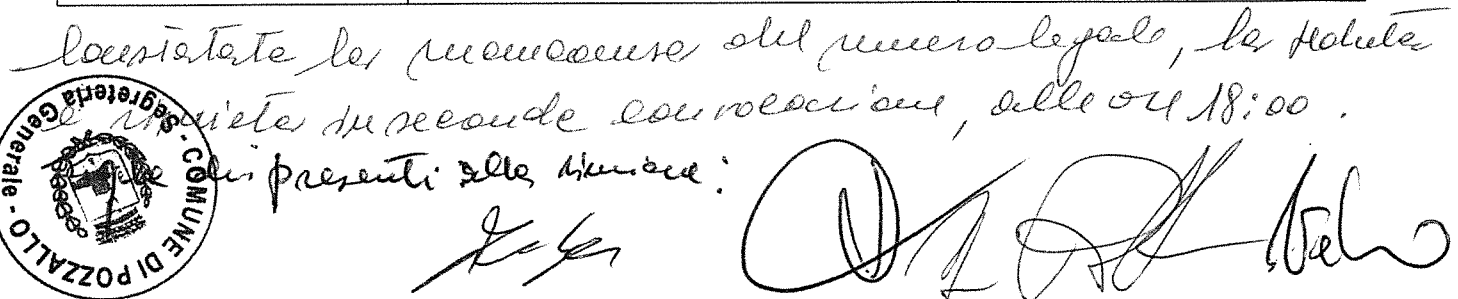 Constatata la mancanza del numero legale, la seduta
è rinviata in seconda convocazione, alle ore 18:00.
dei presenti alla riunione:
COMUNE DI POZZALLO - Segreteria Generale -